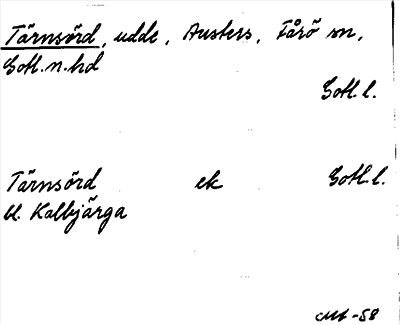 Tärnsörd, udde, Austers, Fårö sn,
Gotl. n. hd
Gotl. l.
Tärnsörd ek Gotl. l.
bl. Kalbjärga
-58